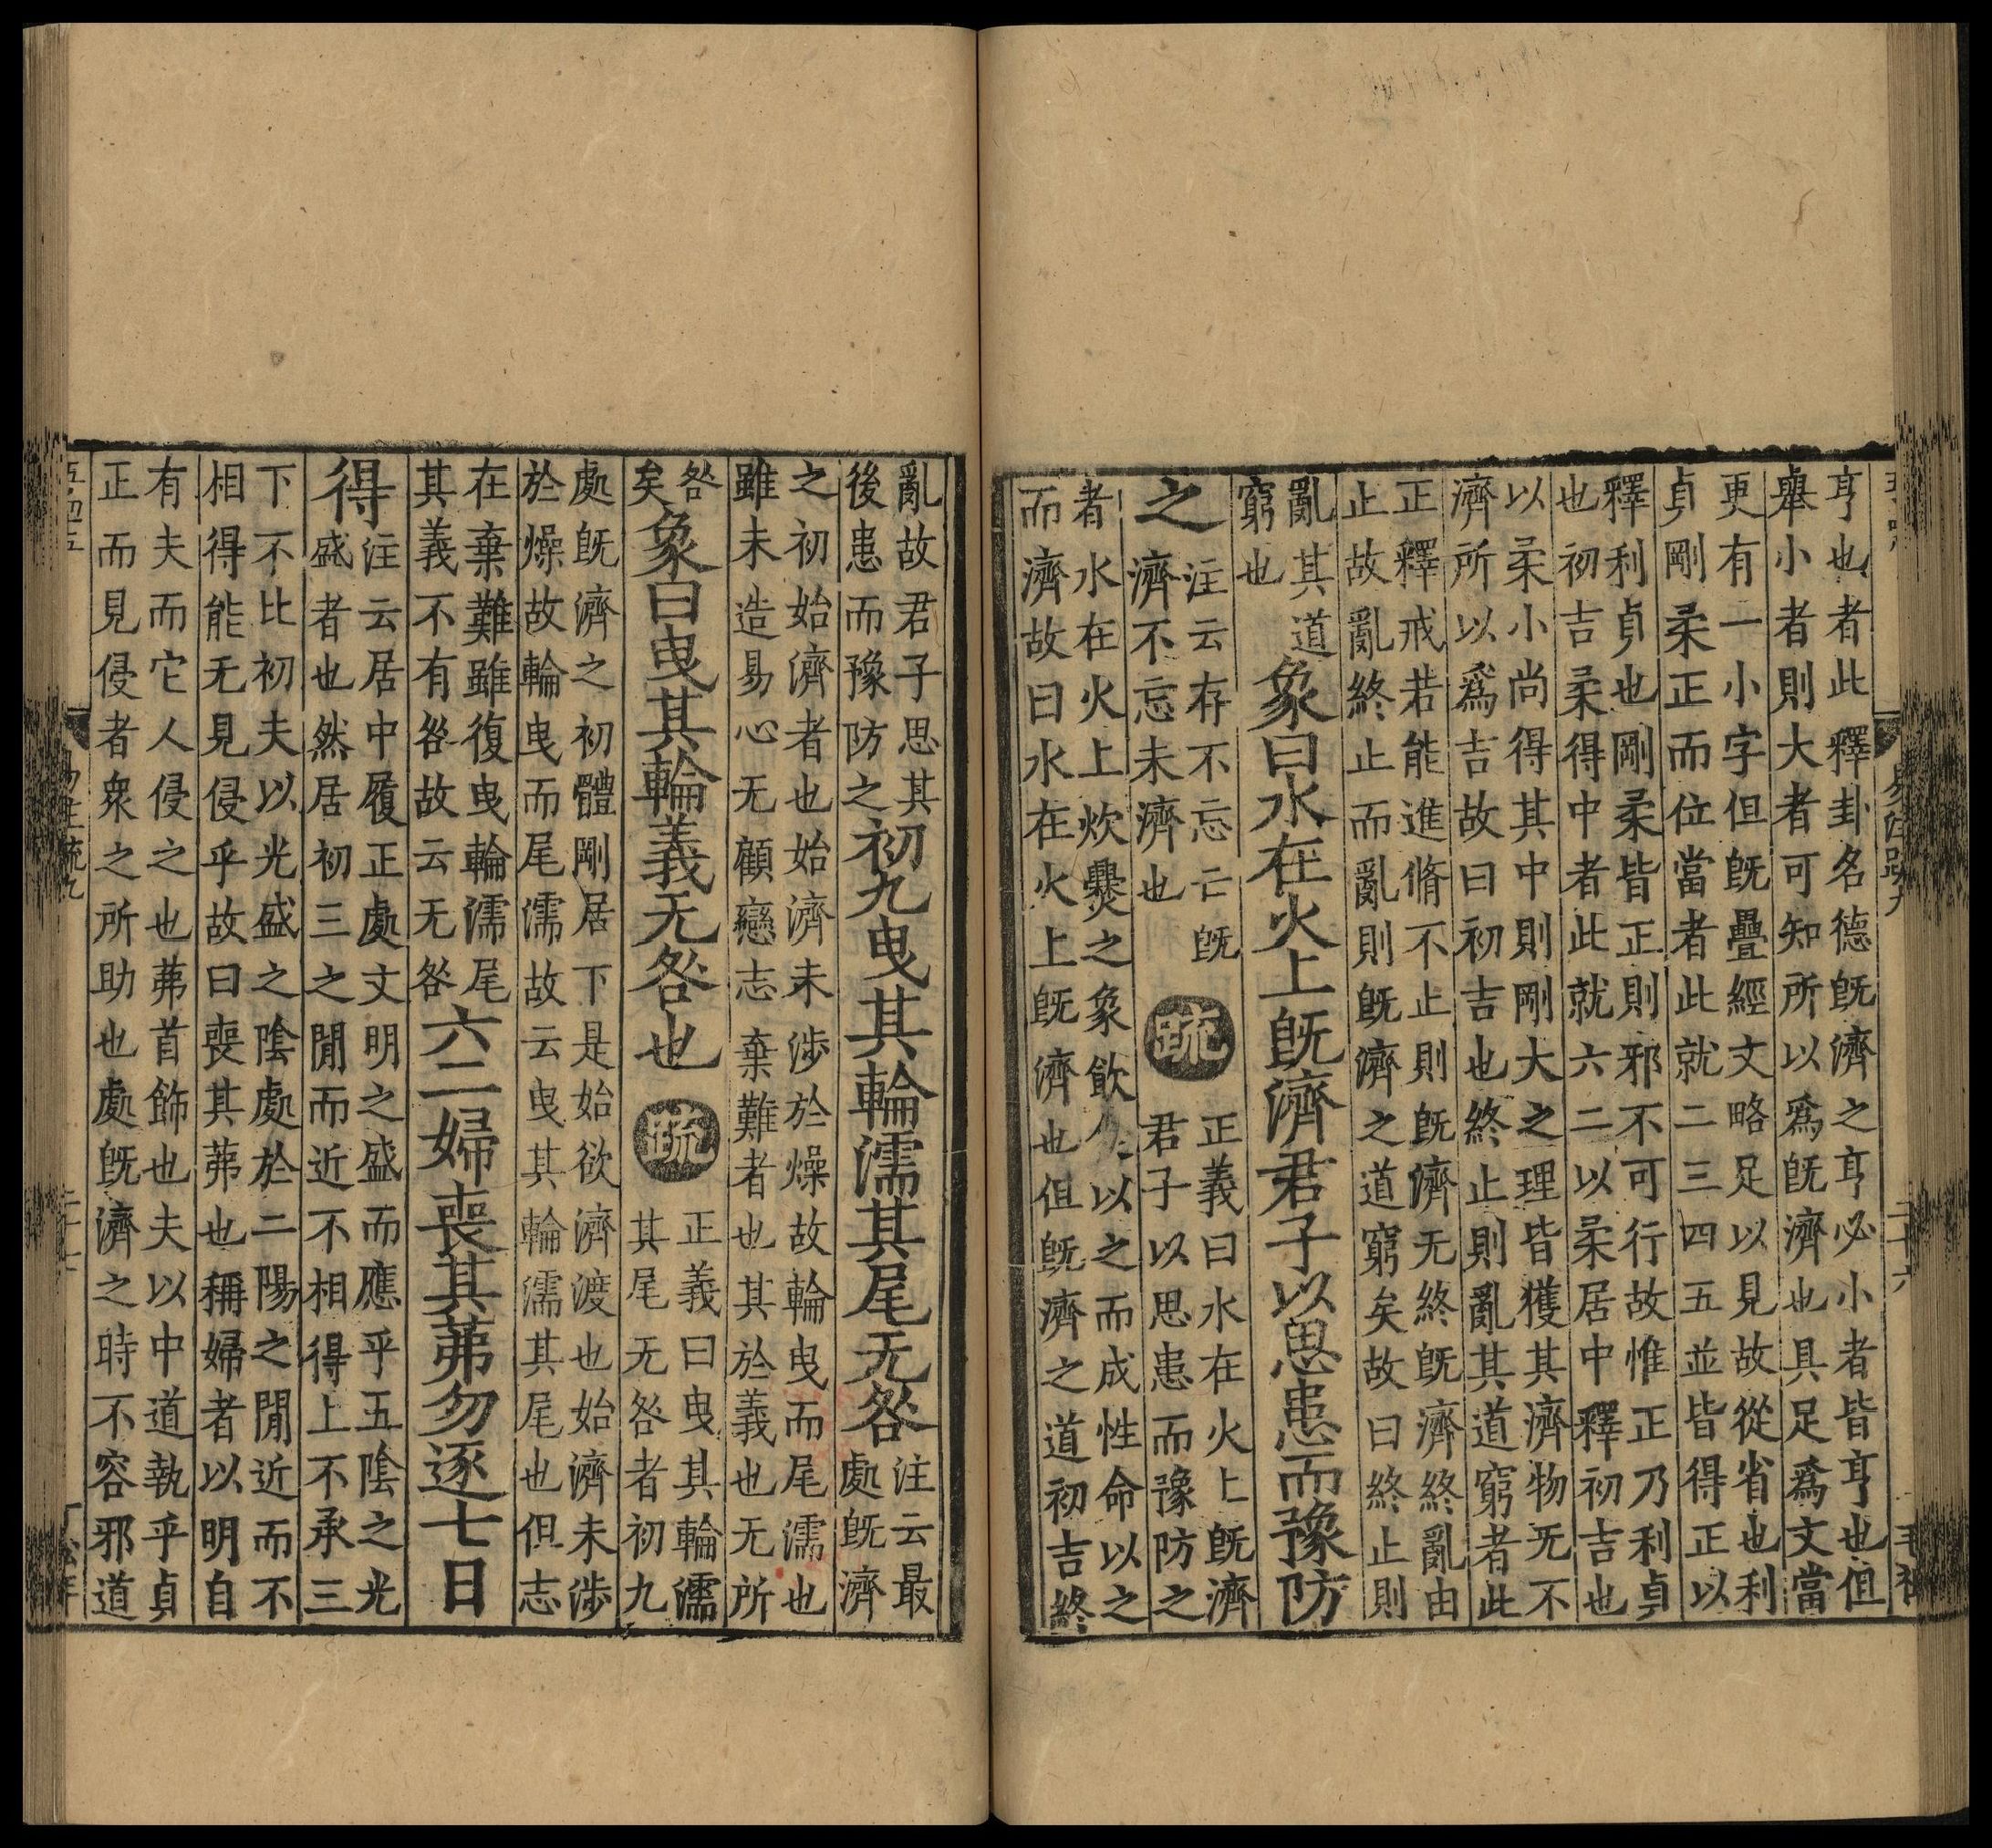 易注疏九
二十六
亨也者此釋卦名德既濟之亨必小者皆亨也但
舉小者則大者可知所以爲既濟也具足爲文當
更有一小字但既疊經文略足以見故從省也利
貞剛柔正而位當者此就二三四五並皆得正以
釋利貞也剛柔皆正則邪不可行故惟正乃利貞
也初吉柔得中者此就六二以柔居中釋初吉也
以柔小尚得其中則剛大之理皆獲其濟物无不
濟所以爲吉故曰初吉也終止則亂其道窮者此
正釋戒若能進脩不止則既濟无終既濟終亂由
止故亂終止而亂則既濟之道窮矣故曰終止則
亂其道
窮也
象曰水在火上既濟君子以思患而豫防
之
注云存不忘亡既
濟不忘未濟也
疏
正義曰水在火上既濟
君子以思患而豫防之
者水在火上炊爨之象飲以之而成性命以之
而濟故曰水在火上既濟也但既濟之道初吉終
亂故君子思其
後患而豫防之
初九曳其輪濡其尾无咎
注云最
處既濟
之初始濟者也始濟未涉於燥故輪曳而尾濡也
雖未造易心无顧戀志棄難者也其於義也无所
咎
矣
象曰曳其輪義无咎也
疏
正義曰曳其輪濡
其尾无咎者初九
處既濟之初體剛居下是始欲濟渡也始濟未涉
於燥故輪曳而尾濡故云曳其輪濡其尾也但志
在棄難雖復曳輪濡尾
其義不有咎故云无咎
六二婦喪其茀勿逐七日
得
注云居中履正處文明之盛而應乎五陰之光
盛者也然居初三之閒而近不相得上不承三
下不比初夫以光盛之陰處於二陽之閒近而不
相得能无見侵乎故曰喪其茀也稱婦者以明自
有夫而它人侵之也茀首飾也夫以中道執乎貞
正而見侵者衆之所助也處既濟之時不容邪道